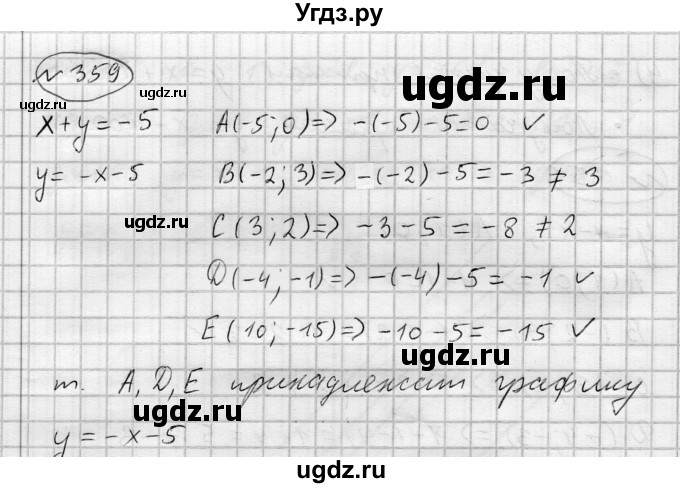 Угдз.ру
№ 359
ugdz.ru
ugdz.ru
x+y=-5 A(-5;0)=> -(-5)-5=0 ✓
y=-x-5 B(-2;3)=> -(-2)-5=-3≠3
ugdz.ru
ugdz.ru
C(3;2)=> -3-5=-8≠2
D(-4;-1)=> -(-4)-5=-1 ✓
E(10;-15)=> -10-5=-15 ✓
ugdz.ru
т. A, D, E принадлежат графику
ugdz.ru
y=-x-5
ugdz.ru
ugdz.ru